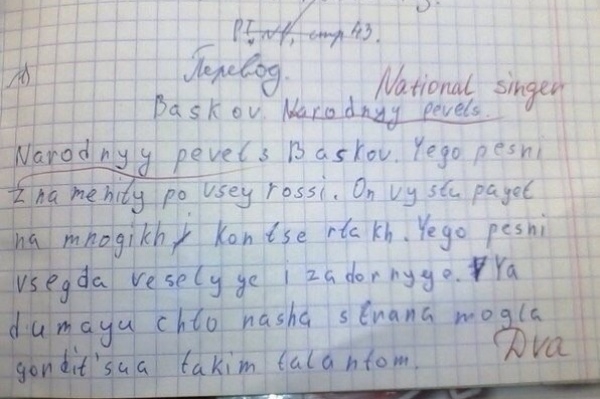 стр. 43.
Перевод.
National singer
Baskov. Narodnyy pevets.
Narodnyy pevets Baskov. Yego pesni
znamenity po vsey rossi. On vystupayet
na mnogikh kontsertakh. Yego pesni
vsegda veselyye i zadornyye. Ya
dumayu chto nasha strana mogla
gordit'sua takim talantom.
Dva